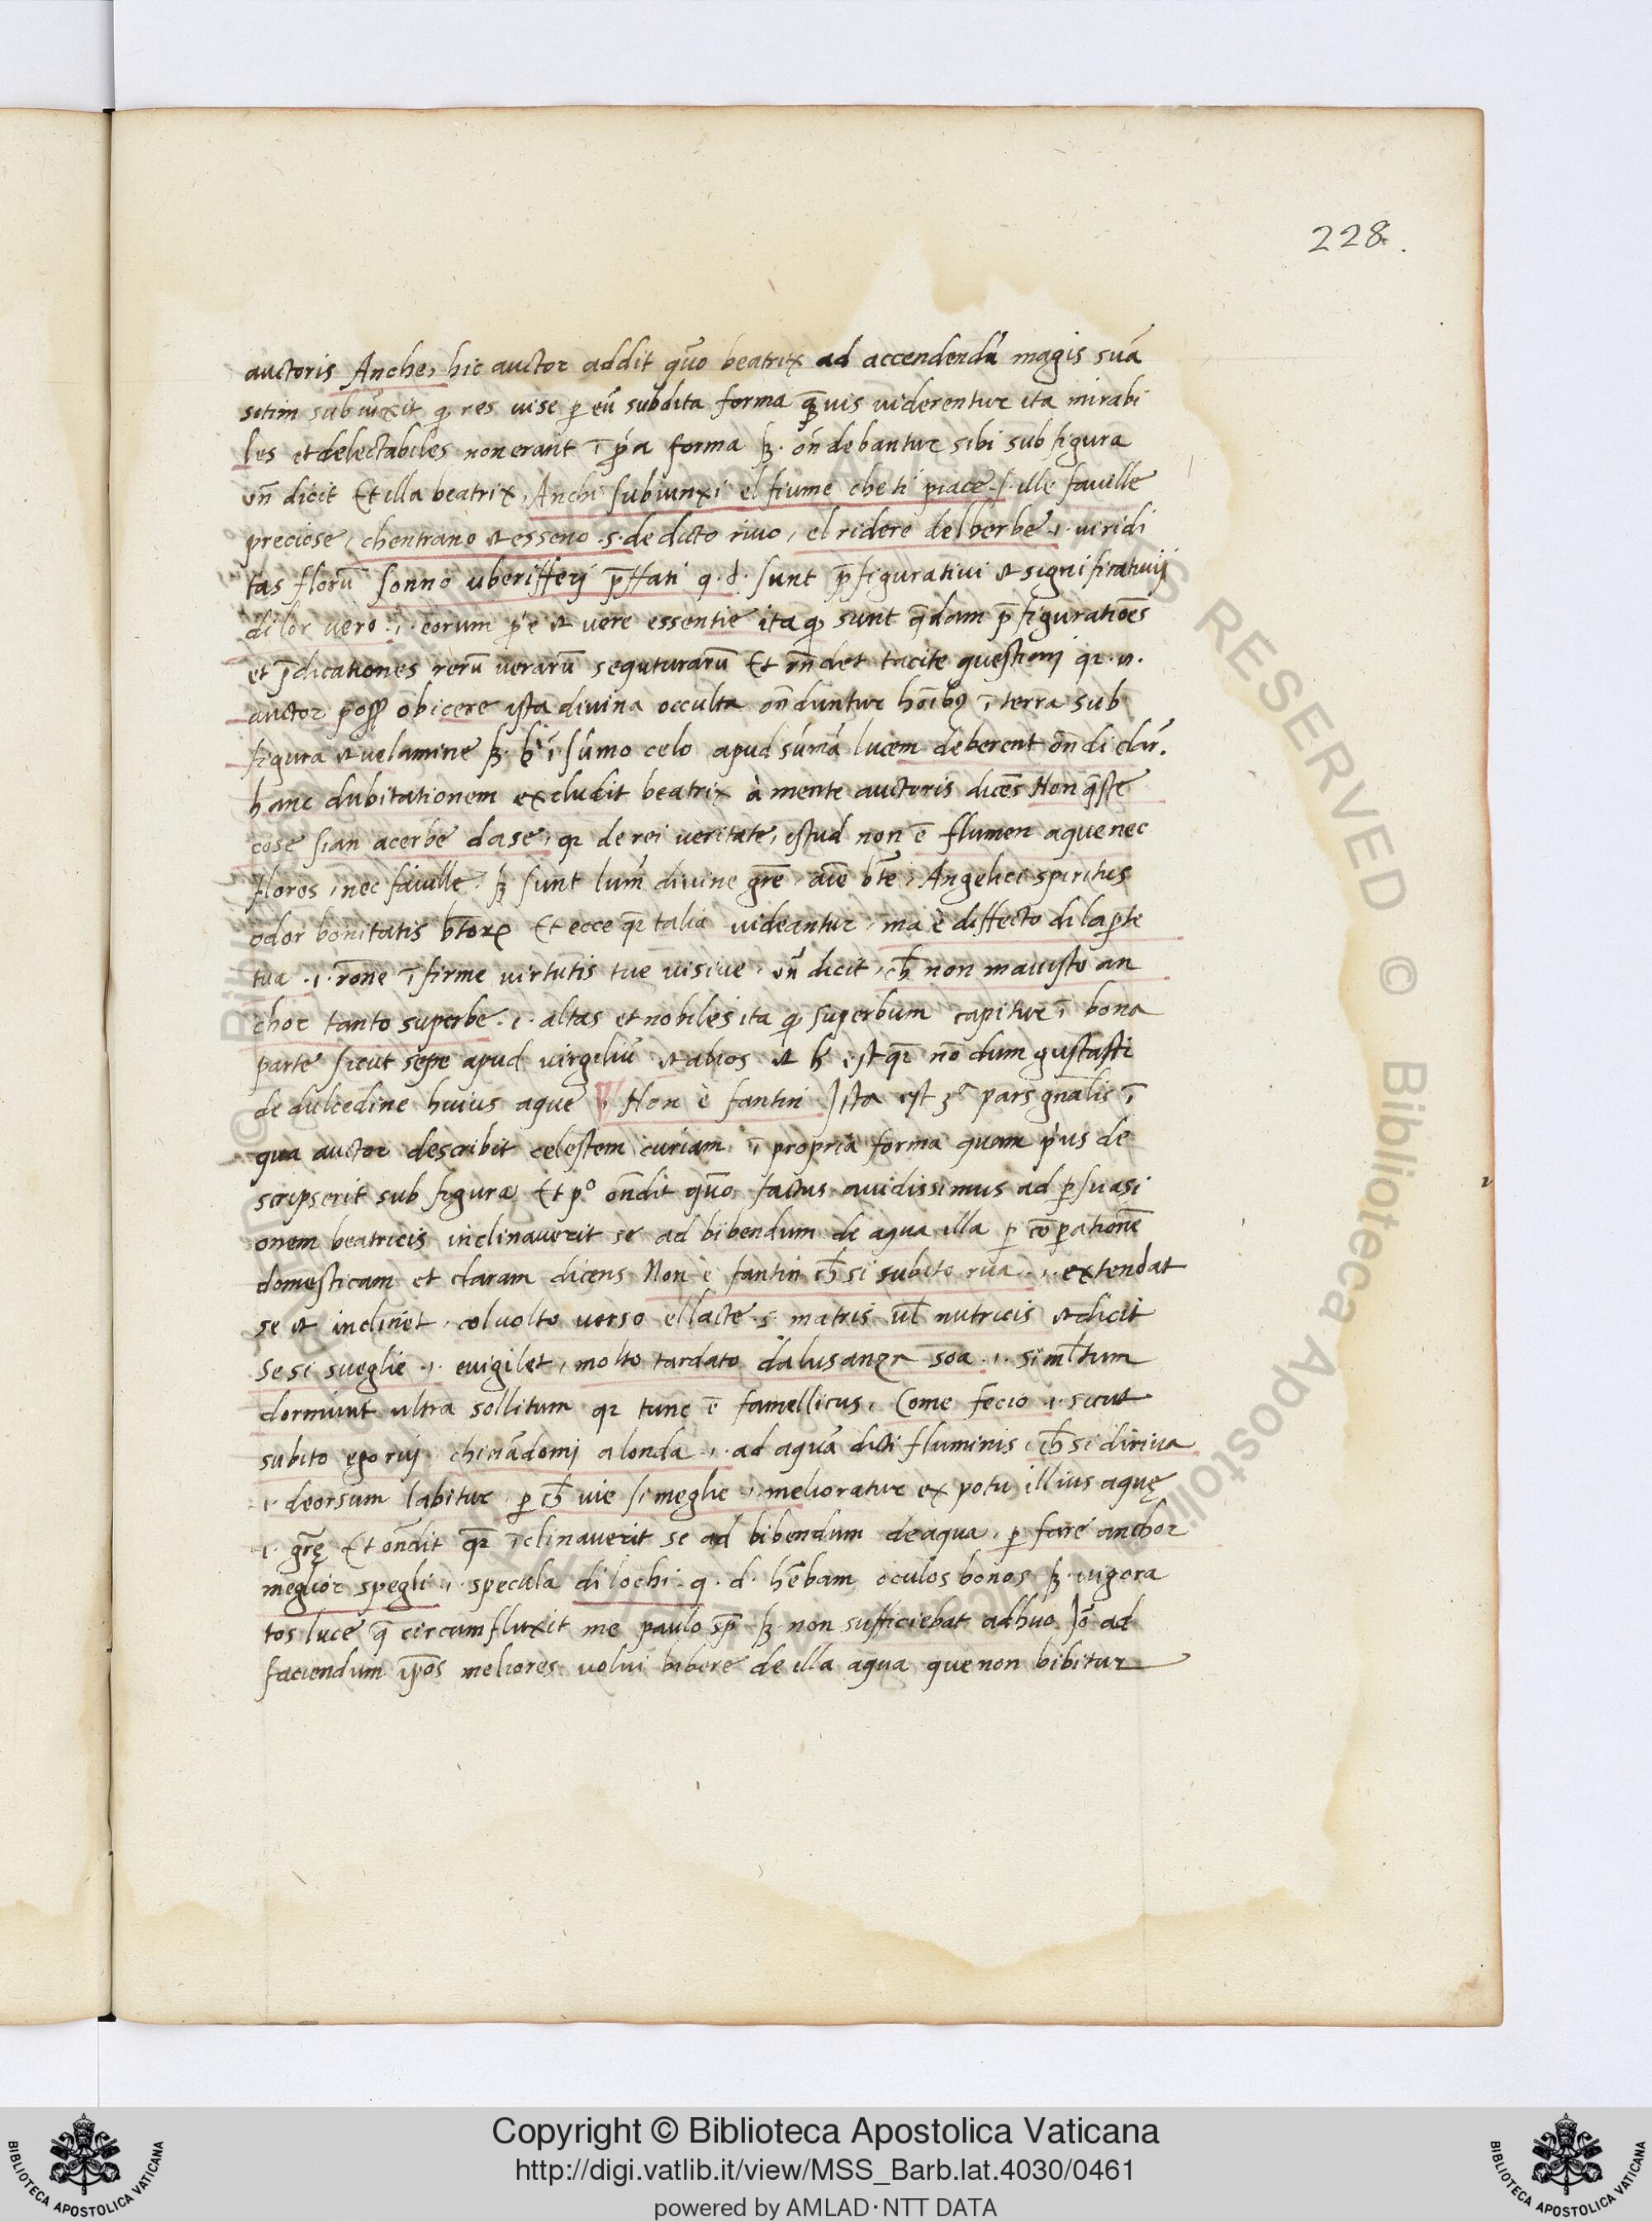 228.
auctoris Anche, hic auctor addit quō beatrix ad accendendā magis suā
sitim subiūxit q res vise p eū subdita forma quāvis viderentur ita mirabi
les et delectabiles non erant ī p̄a forma sꝫ ondēbantur sibi sub figura
un̄ dicit Et illa beatrix, Anchi subiunxi el fiume che ti piace .s. ille faville
preciose, chentrano et esseno .s. de dicto rivo, el ridere del herbe .i. viridi
tas florū sonno uberifferi prēffati q.d. sunt prēfigurativi et significativi
di lor vero .i. eorum pꝛe et vere essentie ita q sunt quēdam prēfigurationēs
et prēdicationes rerū verarū seguturarū Et rn̄det tacite questioni qꝛ .n.
auctor poss obicere ista divina occulta ondūntur hoībꝫ ī terra sub
figura et velamine sꝫ hꝰ ī sūmo celo apud sūmā lucem deberent ondī clar̄.
hanc dubitationem excludit beatrix à mente auctoris dicēs Non quēste
cose sian acerbe da se, qꝛ de rei veritate, istud non ē flumen aque nec
flores, nec faville sꝫ sunt lum̄ divine grē, aīe bt̄e, Angelici spiritus
odor bonitatis bt̄orꝝ Et ecce quar̄ talia videantur, ma è diffecto di la pte
tua .i. rōne īfirme virtutis tue visive, un̄ dicit, ch non may visto an
chor tanto superbe .i. altas et nobiles ita q superbum capitur ī bona
parte sicut sepe apud virgiliū et alios et h est quar̄ nō dum gustasti
de dulcedine huius aque Non è fantin Ista est 3ᵃ pars gnālis ī
qua auctor describit celestem curiam ī propria forma quam p'us de
scripserit sub figura Et pᵒ ondīt quō factus avidissimus ad psuasi
onem beatricis inclinaverit se ad bibendum de aqua illa p cōpationē
domesticam et claram dicens Non è fantin ch si subito rua .i. extendat
se et inclinet, col volto verso el lacte .s. matris vl nutricis et dicit
Se si sveglie .i. evigilet, molto tardato da lusanza soa .i. siml̄tum
dormiunt ultra sollitum qꝛ tunc ē famellicus, Come fecio .i. sicut
subito ego ruj chināndomi a londa .i. ad aquā dicti fluminis ch si diriva
.i. deorsum labitur p ch vie si meglie .i. melioratur ex potu illius aquę
.i. grę̄ Et ondīt quar̄ īclinaverit se ad bibendum de aqua, p fare anchor
meglior spegli .i. specula di lochi .q.d. hēbam oculos bonos sꝫ vigora
tos luce quē circumfluxit me paulo sp̄ sꝫ non sufficiebat adhuc Iō ad
faciendum ipōs meliores volui bibere de illa aqua que non bibitur
© Biblioteca Apostolica
RESERVED
Copyright © Biblioteca Apostolica Vaticana
http://digi.vatlib.it/view/MSS_Barb.lat.4030/0461
powered by AMLAD·NTT DATA
BIBLIOTECA APOSTOLICA VATICANA
BIBLIOTECA APOSTOLICA VATICANA